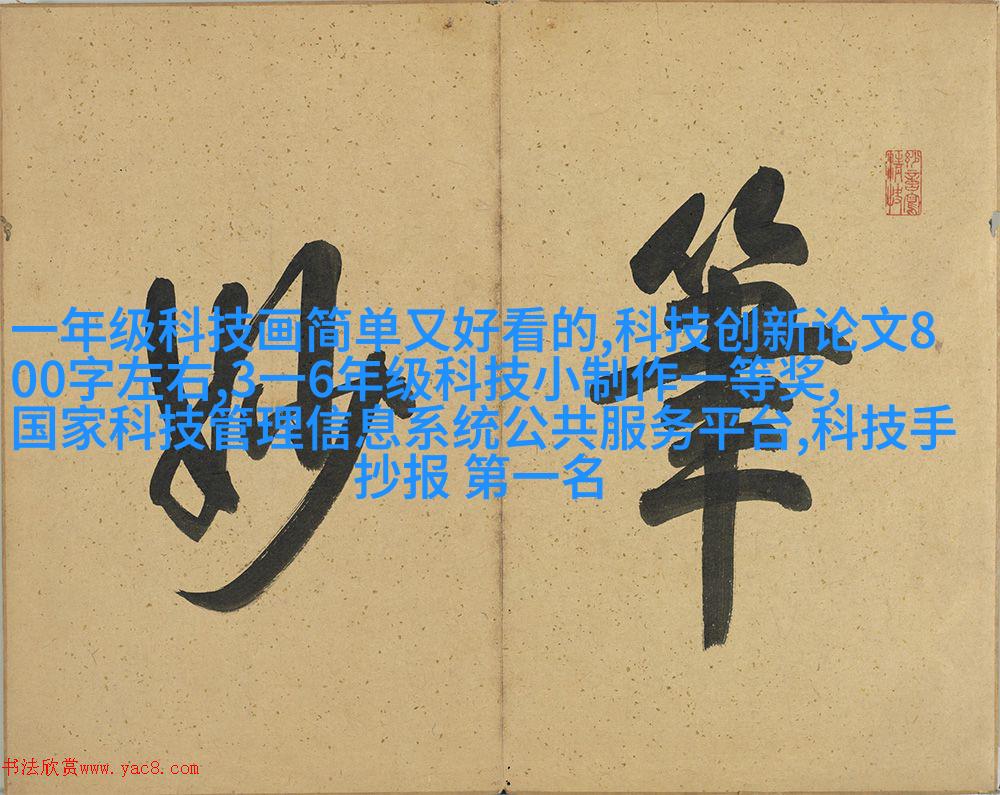 筆妙
一年级科技画简单又好看的,科技创新论文8
00字左右,3一6年级科技小制作一等奖,
国家科技管理信息系统公共服务平台,科技手
抄报 第一名
书法欣赏www.yac8.com